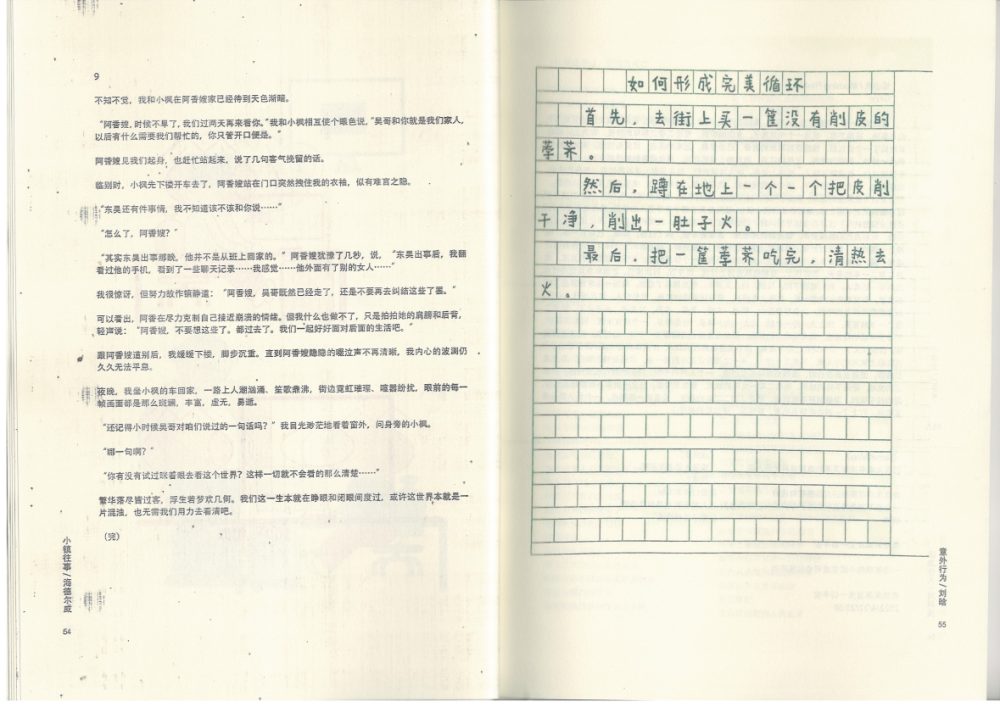 9
不知不觉，我和小枫在阿香嫂家已经待到天色渐暗。
“阿香嫂，时候不早了，我们过两天再来看你。”我和小枫相互使个眼色说，“吴哥和你就是我们家人，
以后有什么需要我们帮忙的，你只管开口便是。”
阿香嫂见我们起身，也赶忙站起来，说了几句客气挽留的话。
临别时，小枫先下楼开车去了，阿香嫂站在门口突然拽住我的衣袖，似有难言之隐。
“东吴还有件事情，我不知道该不该和你说……”
“怎么了，阿香嫂？”
“其实东吴出事那晚，他并不是从班上回家的。”阿香嫂犹豫了几秒，说，“东吴出事后，我翻
看过他的手机，看到了一些聊天记录……我感觉……他外面有了别的女人……”
我很惊讶，但努力故作镇静道：“阿香嫂，吴哥既然已经走了，还是不要再去纠结这些了罢。”
可以看出，阿香在尽力克制自己接近崩溃的情绪。但我什么也做不了，只是拍拍她的肩膀和后背，
轻声说：“阿香嫂，不要想这些了。都过去了。我们一起好好面对后面的生活吧。”
跟阿香嫂道别后，我缓缓下楼，脚步沉重。直到阿香嫂隐隐的啜泣声不再清晰，我内心的波澜仍
久久无法平息。
夜晚，我坐小枫的车回家，一路上人潮汹涌、笙歌鼎沸，街边霓虹璀璨、喧嚣纷扰，眼前的每一
帧画面都是那么斑斓，丰富，虚无，易逝。
“还记得小时候吴哥对咱们说过的一句话吗？”我目光渺茫地看着窗外，问身旁的小枫。
“哪一句啊？”
“你有没有试过眯着眼去看这个世界？这样一切就不会看的那么清楚……”
繁华落尽皆过客，浮生若梦欢几何。我们这一生本就在睁眼和闭眼间度过，或许这世界本就是一
片混浊，也无需我们用力去看清吧。
（完）
小镇往事/海德尔威
54
如何形成完美循环
首先，去街上买一筐没有削皮的
荸荠。
然后，蹲在地上一个一个把皮削
干净，削出一肚子火。
最后，把一筐荸荠吃完，清热去
火。
意外行为/刘晗
55